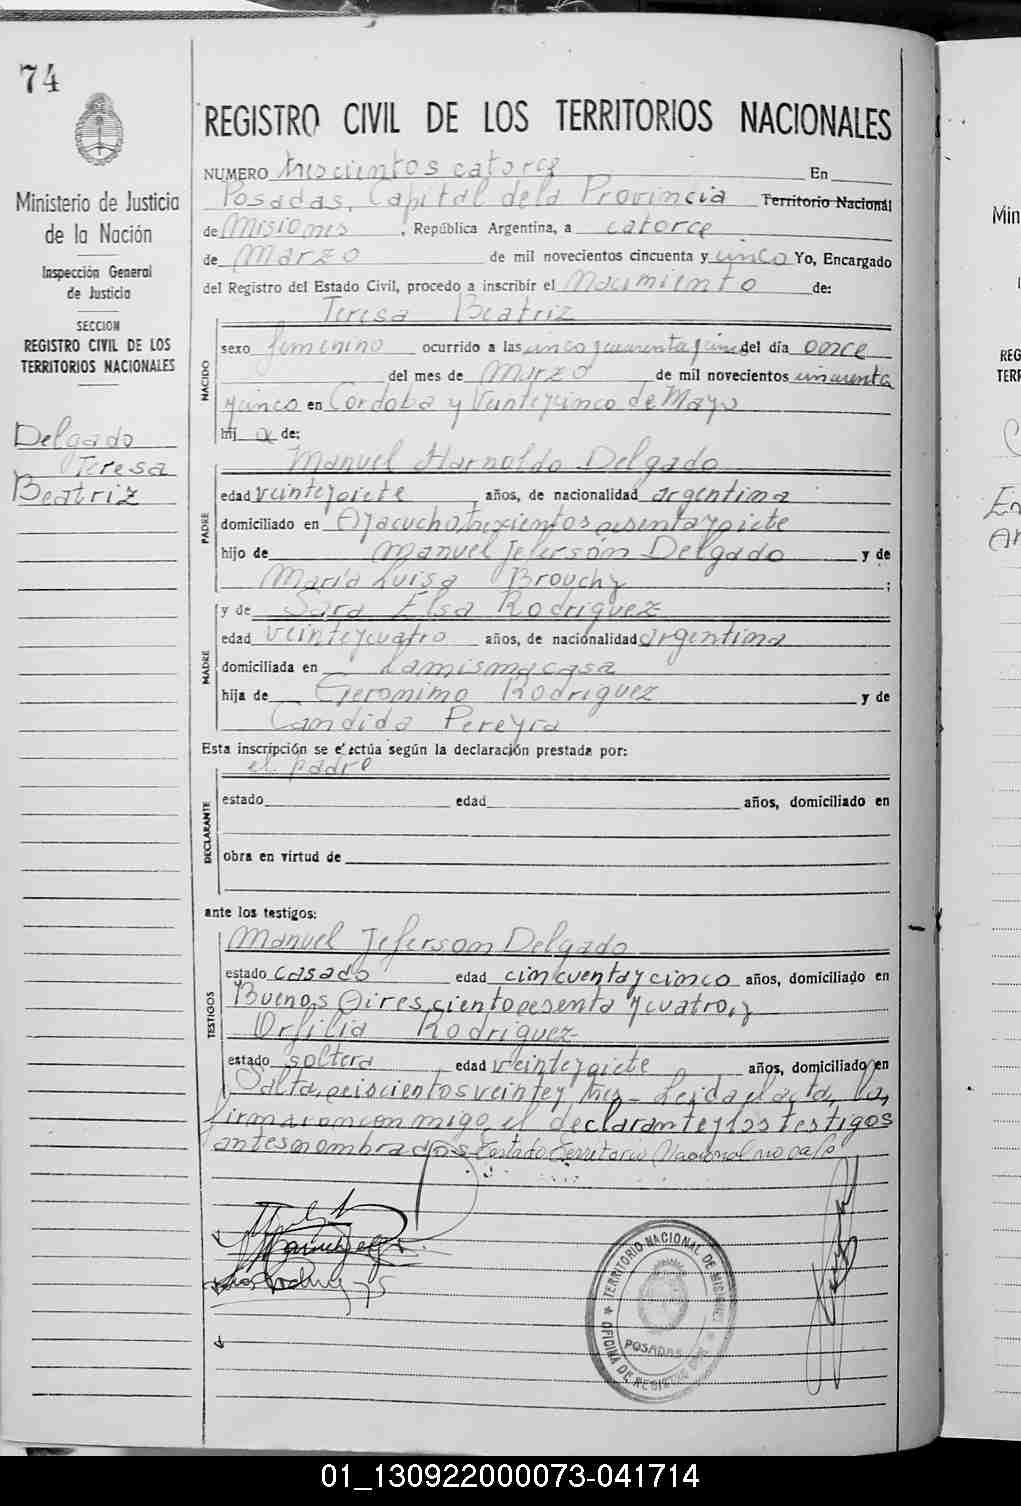 74
REGISTRO CIVIL DE LOS TERRITORIOS NACIONALES
Ministerio de Justicia
de la Nación
Inspección General
de Justicia
SECCION
REGISTRO CIVIL DE LOS
TERRITORIOS NACIONALES
Delgado
Teresa
Beatriz
NUMERO trescientos catorce En
Posadas, Capital de la Provincia Territorio Nacional
de Misiones, República Argentina, a catorce
de Marzo de mil novecientos cincuenta y cinco Yo, Encargado
del Registro del Estado Civil, procedo a inscribir el Nacimiento de:
Teresa Beatriz
NACIDO
sexo femenino ocurrido a las cinco y cuarenta y cinco del día once
del mes de Marzo de mil novecientos cincuenta
y cinco en Cordoba y Veinteycinco de Mayo
hij a de:
Manuel Harnoldo Delgado
PADRE
edad veinteysiete años, de nacionalidad argentina
domiciliado en Ayacucho, trescientos sesenta y siete
hijo de Manuel Jeferson Delgado y de
Maria Luisa Brouchy ;
y de Sara Elsa Rodriguez
MADRE
edad veinteycuatro años, de nacionalidad argentina
domiciliada en La misma casa
hija de Geronimo Rodriguez y de
Candida Pereyra
Esta inscripción se efectúa según la declaración prestada por:
el padre
DECLARANTE
estado edad años, domiciliado en
obra en virtud de
ante los testigos:
TESTIGOS
Manuel Jeferson Delgado
estado casado edad cincuenta y cinco años, domiciliado en
Buenos Aires, ciento sesenta y cuatro, y
Orfilia Rodriguez
estado soltera edad veinteysiete años, domiciliado en
Salta, seiscientos veintey tres - Leida el acta, la
firmaron conmigo, el declarante y los testigos
antes nombrados Testado Territorio Nacional no vale
TERRITORIO NACIONAL DE MISIONES
POSADAS
OFICINA DE REGISTRO CIVIL
Min
REG
TERR
01_130922000073-041714